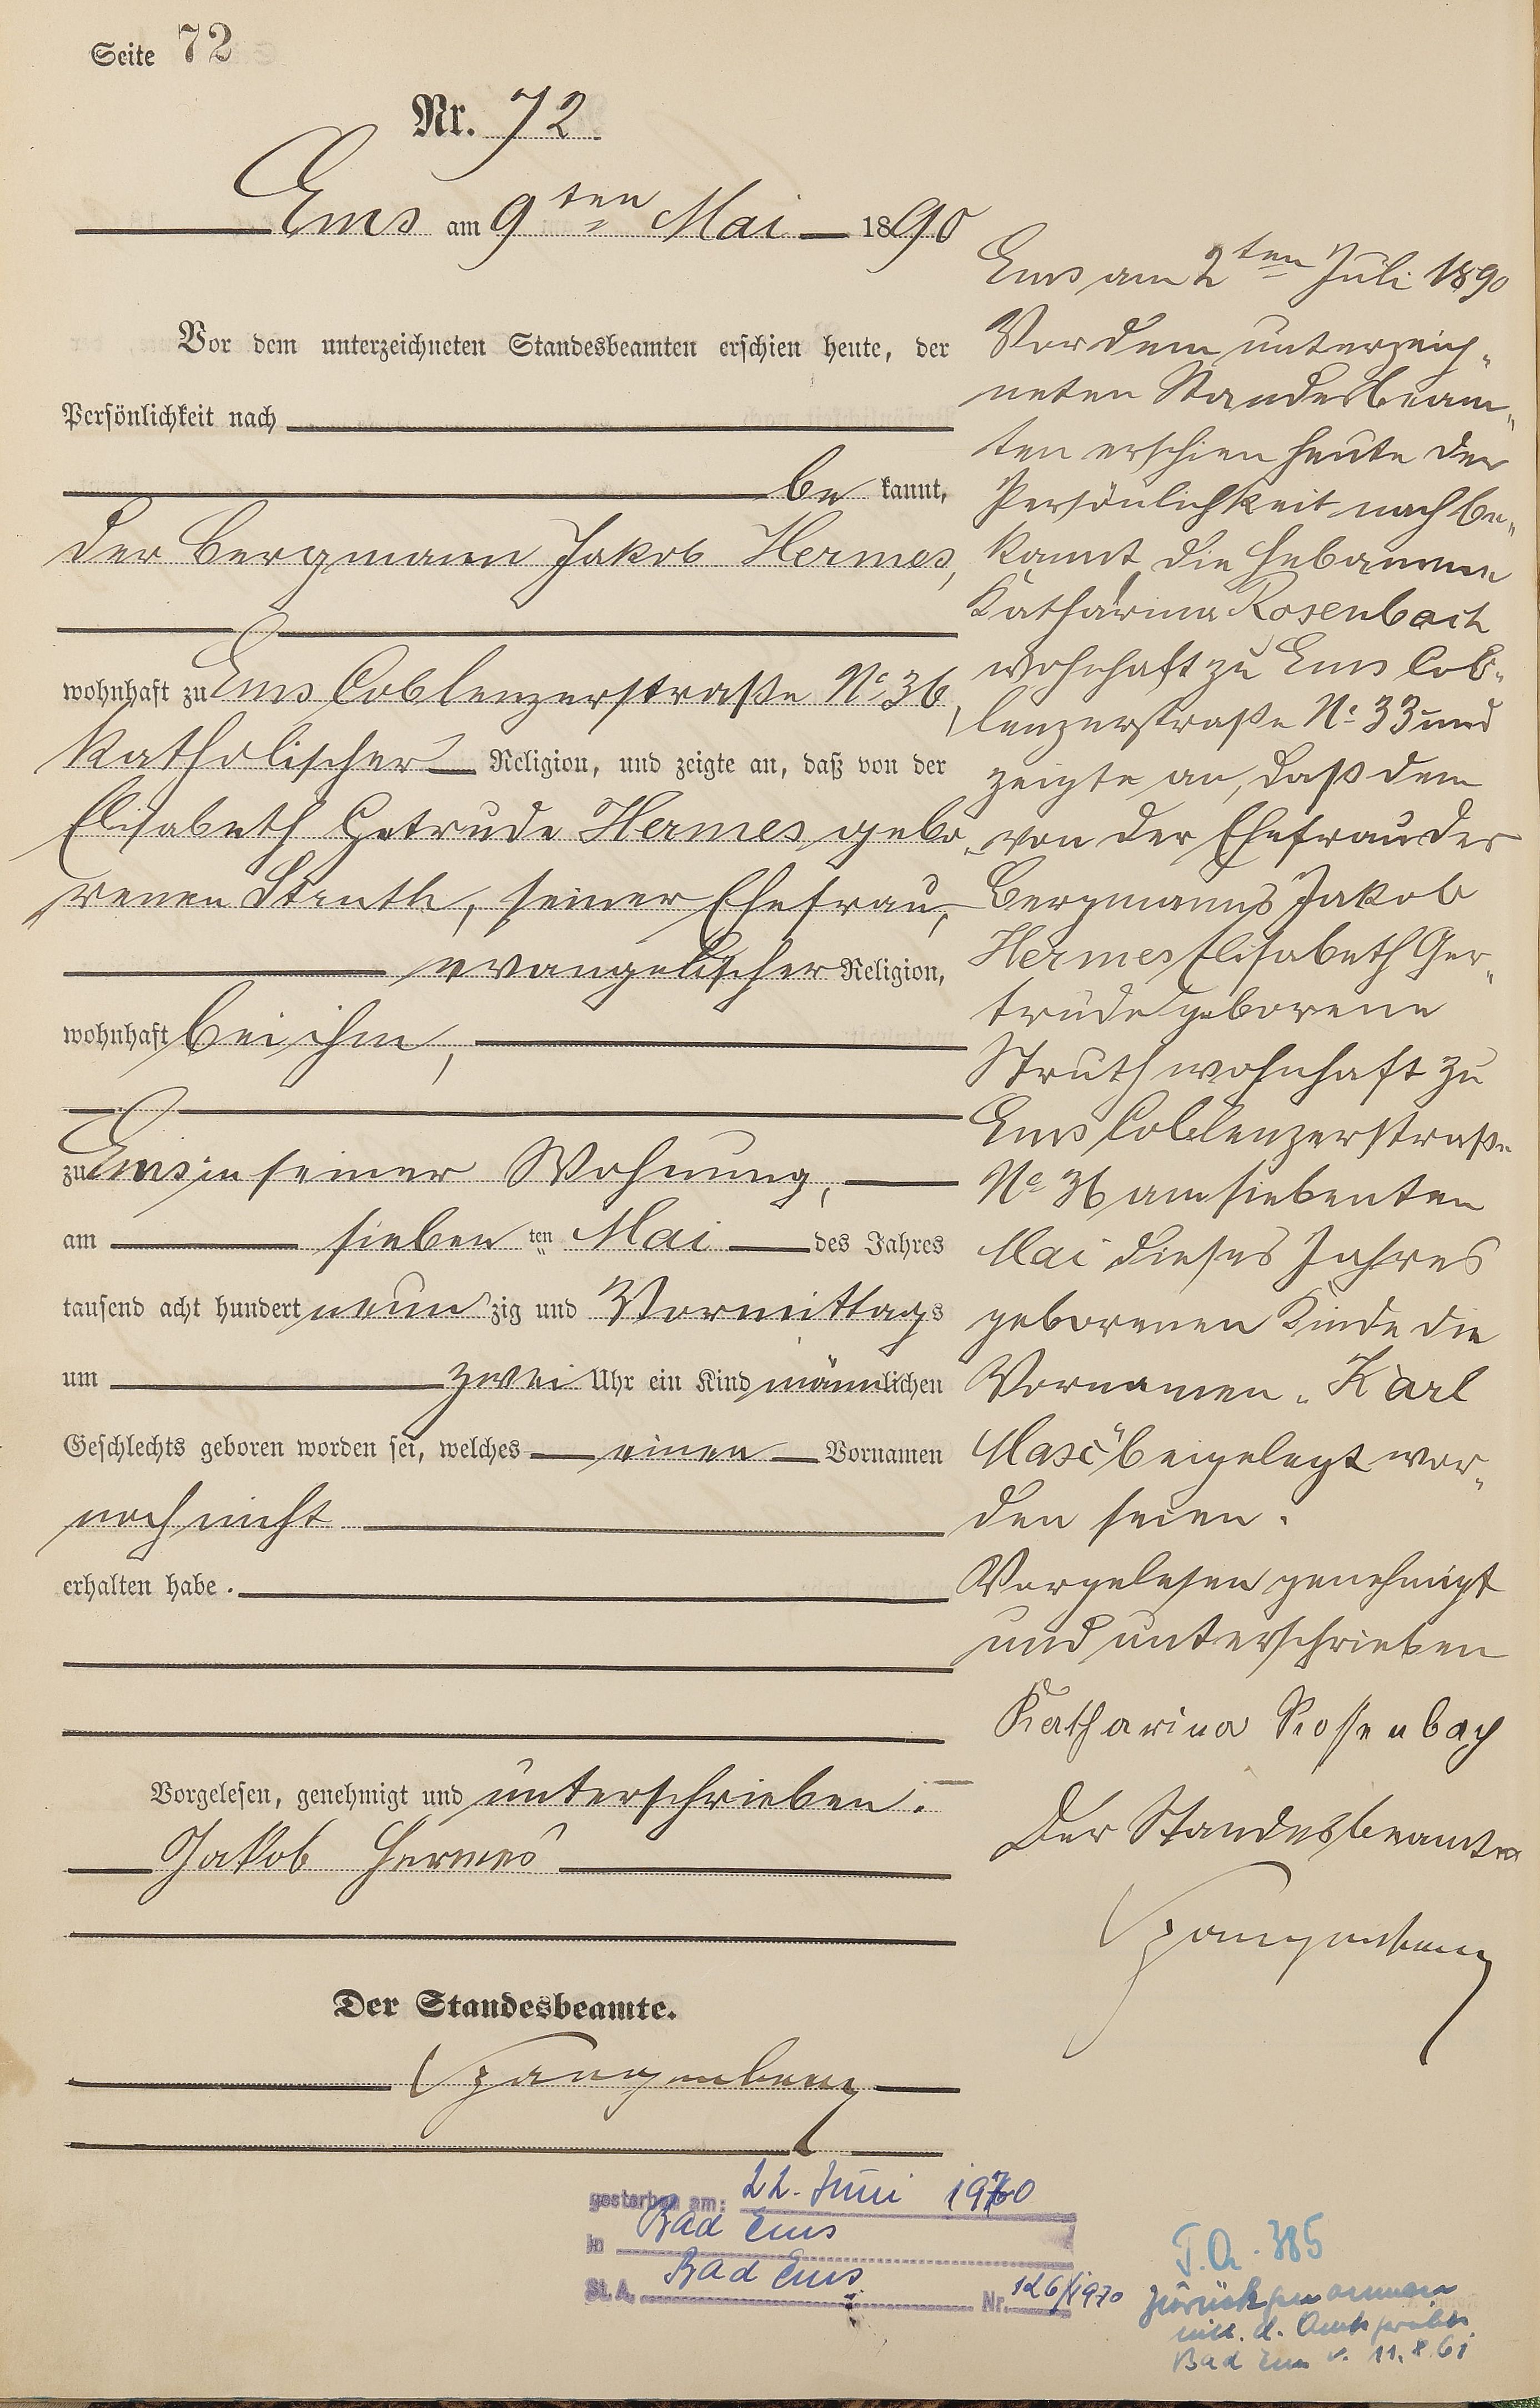 Seite 72
Nr. 72
Ems am 9ten Mai 1890
Vor dem unterzeichneten Standesbeamten erschien heute, der
Persönlichkeit nach
be kannt,
der Bergmann Jakob Hermes,
wohnhaft zu Ems Coblenzerstraße No 36,
katholischer Religion, und zeigte an, daß von der
Elisabeth Getrude Hermes gebo-
renen Struth, seiner Ehefrau,
evangelischer Religion,
wohnhaft bei ihm,
zu Ems in seiner Wohnung,
am sieben ten Mai des Jahres
tausend acht hundert neun zig und Vormittags
um zwei Uhr ein Kind männlichen
Geschlechts geboren worden sei, welches einen Vornamen
noch nicht
erhalten habe.
Vorgelesen, genehmigt und unterschrieben.
Jakob Hermes
Der Standesbeamte.
Spangenberg
Ems am 2ten Juli 1890
Vor dem unterzeich-
neten Standesbeam-
ten erschien heute der
Persönlichkeit nach be-
kannt die Hebamme
Katharina Rosenbach
wohnhaft zu Ems Cob-
lenzerstraße No 33 und
zeigte an, daß dem
von der Ehefrau des
Bergmanns Jakob
Hermes Elisabeth Ger-
trude geborene
Struth wohnhaft zu
Ems Coblenzerstraße
No 36 am siebenten
Mai dieses Jahres
geborenen Kinde die
Vornamen „Karl
Max" beigelegt wor-
den seien.
Vorgelesen genehmigt
und unterschrieben
Katharina Rossenbach
Der Standesbeamte
Spangenberg
gestorben am: 22. Juni 1970
in Bad Ems
St. A. Bad Ems Nr. 126/1970
T.A. 385
zurückgenommen
d. Amtsgerichts
Bad Ems v. 11.8.61